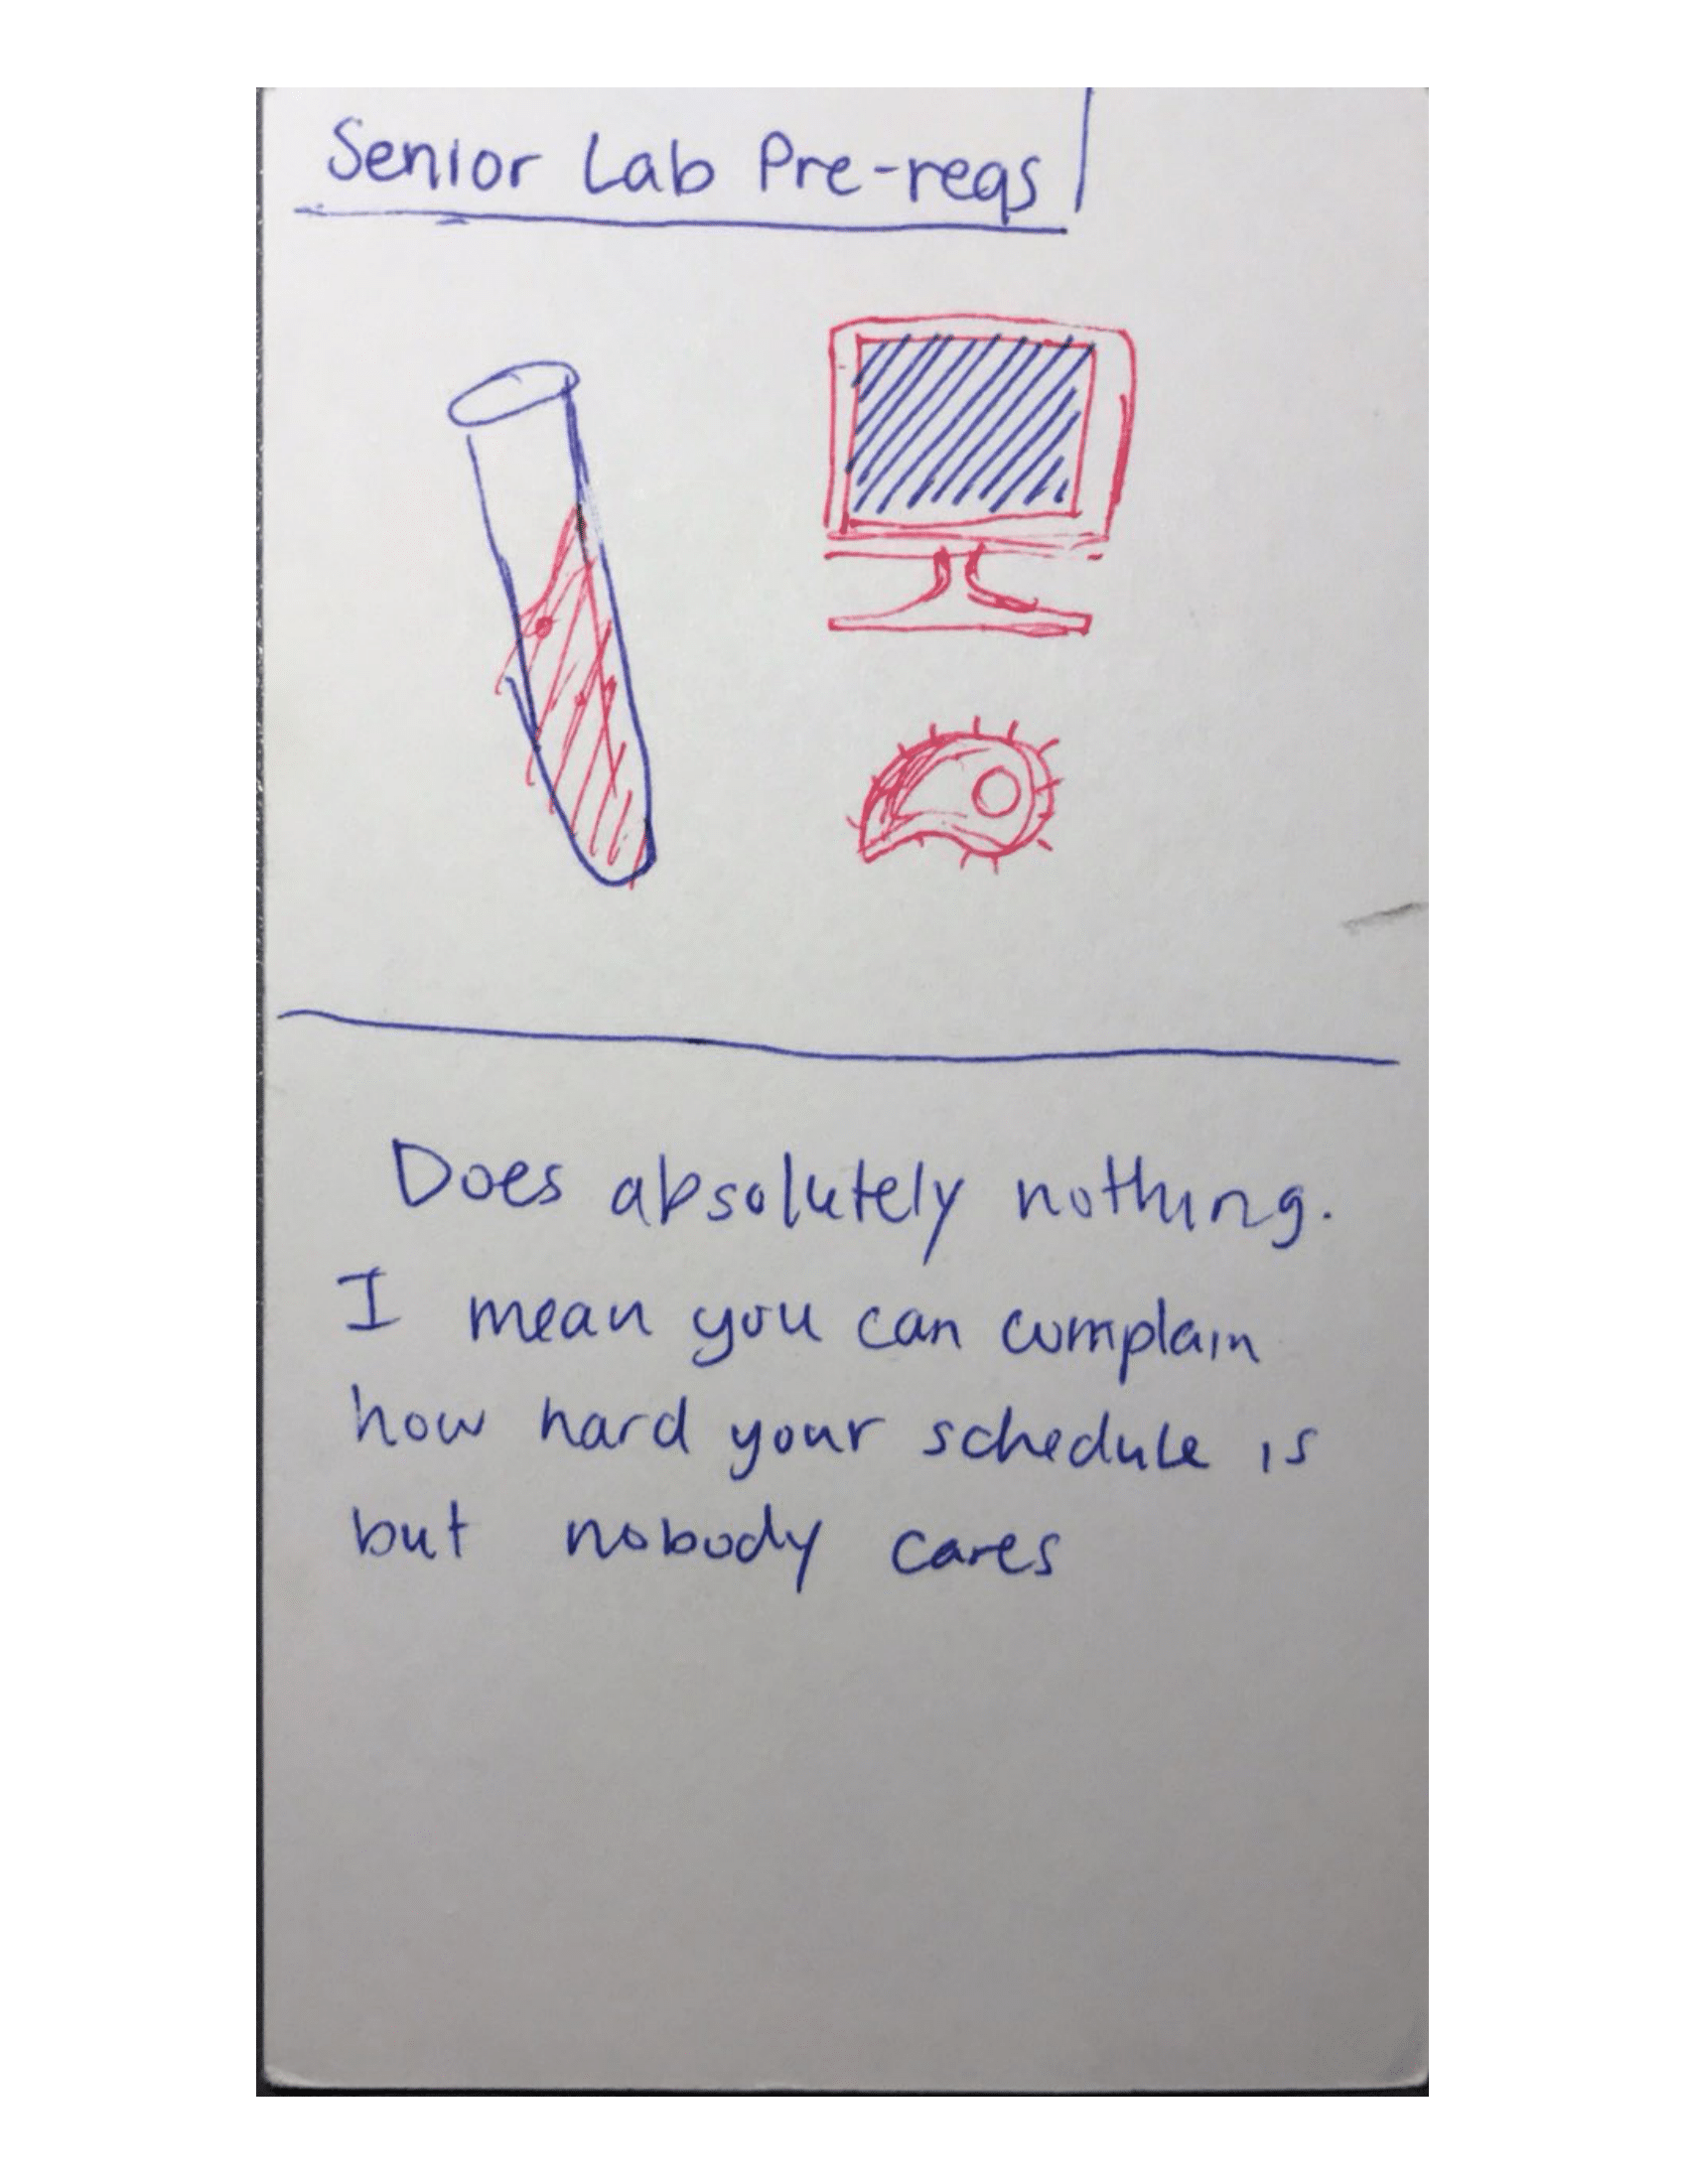 Senior Lab Pre-reqs
Does absolutely nothing.
I mean you can complain
how hard your schedule is
but nobody cares